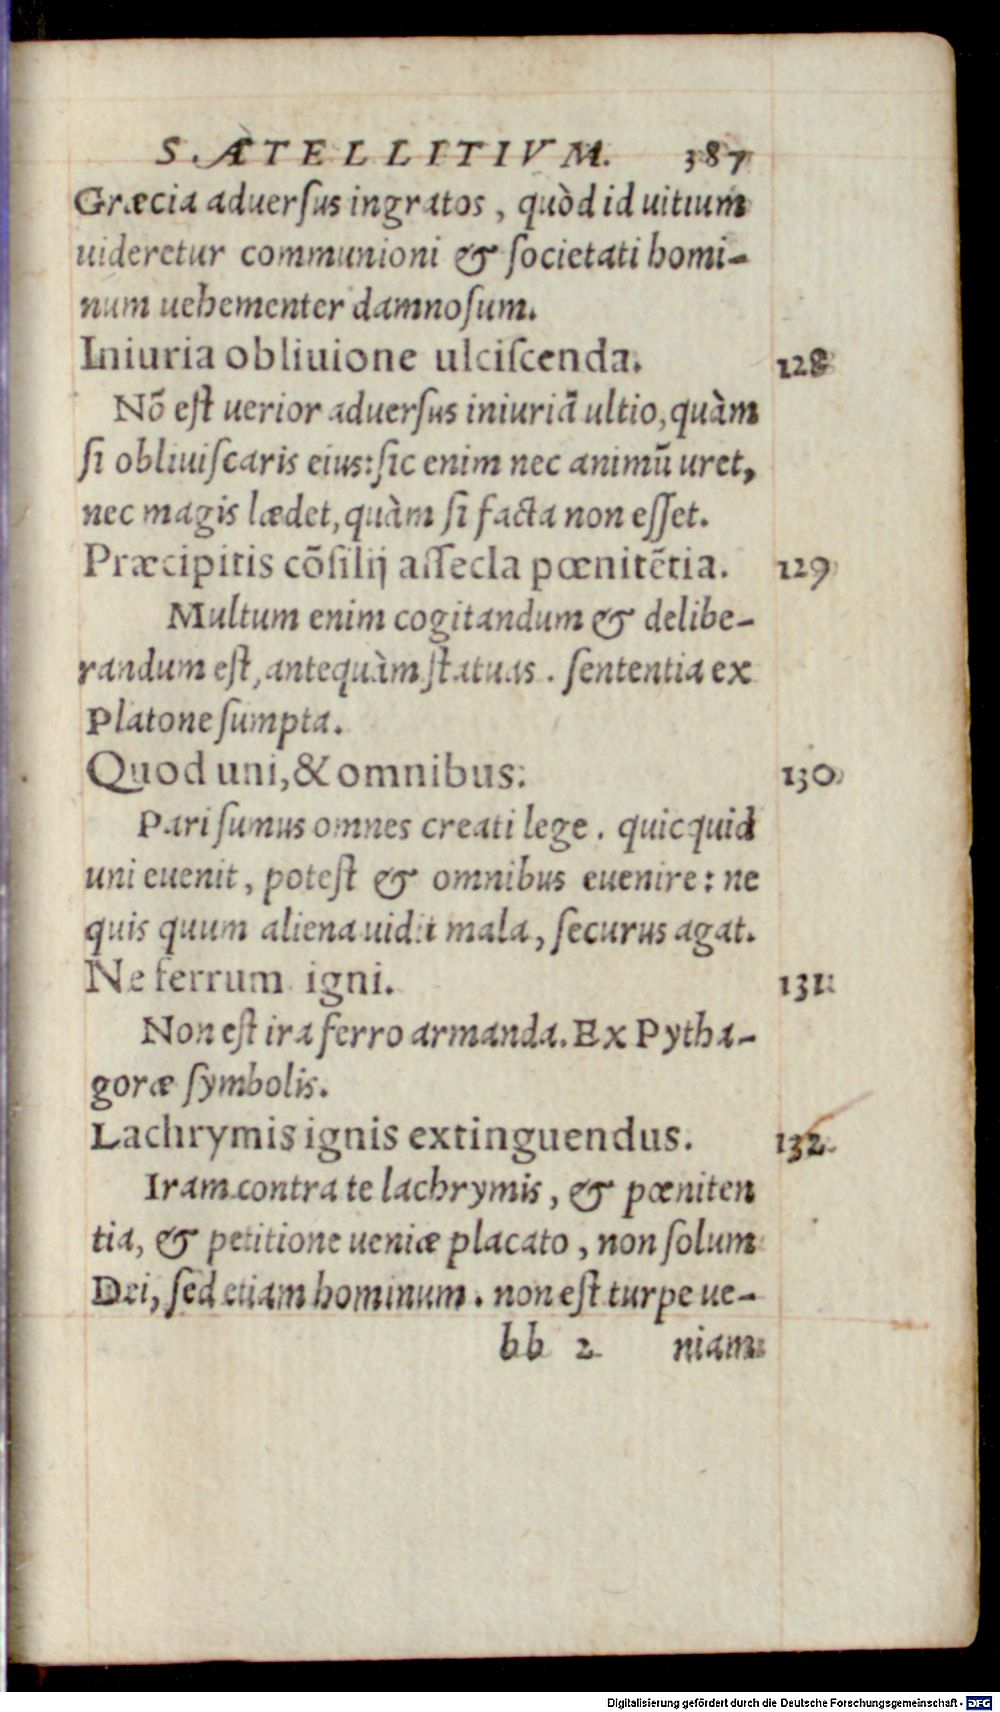 S. ÆTELLITIVM. 387
Græcia aduerſus ingratos, quòd id uitium
uideretur communioni & ſocietati homi-
num uehementer damnoſum.
Iniuria obliuione ulciſcenda. 128
Nō eſt uerior aduerſus iniuriā ultio, quàm
ſi obliuiſcaris eius: ſic enim nec animū uret,
nec magis lædet, quàm ſi facta non eſſet.
Præcipitis cōſilij aſſecla pœnitētia. 129
Multum enim cogitandum & delibe-
randum eſt, antequàm ſtatuas. ſententia ex
Platone ſumpta.
Quod uni, & omnibus. 130
Pari ſumus omnes creati lege. quicquid
uni euenit, poteſt & omnibus euenire: ne
quis quum aliena uidit mala, ſecurus agat.
Ne ferrum igni. 131
Non eſt ira ferro armanda. Ex Pytha-
goræ ſymbolis.
Lachrymis ignis extinguendus. 132
Iram contra te lachrymis, & pœniten
tia, & petitione ueniæ placato, non ſolum
Dei, ſed etiam hominum. non eſt turpe ue-
bb 2 niam
Digitalisierung gefördert durch die Deutsche Forschungsgemeinschaft - DFG